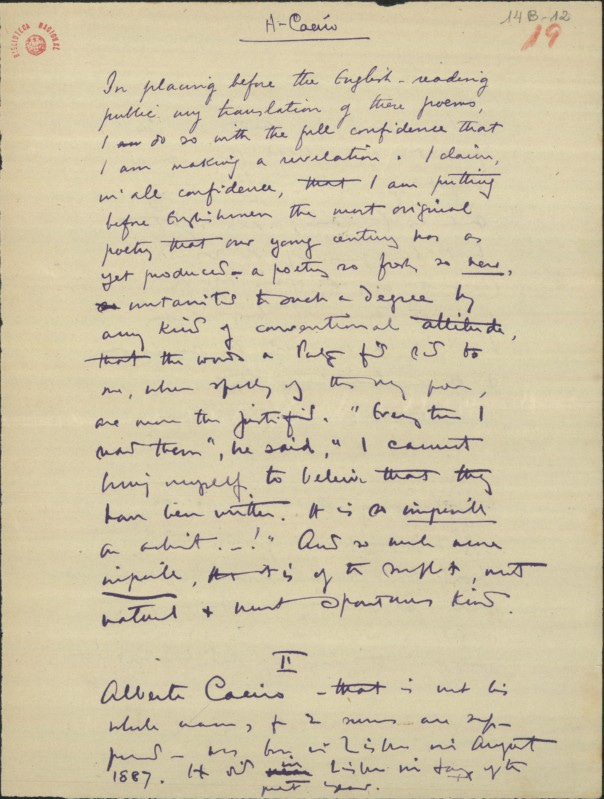 14B-12
19
BIBLIOTECA NACIONAL
A-Caeiro
In placing before the English-reading
public my translation of these poems,
I am do so with the full confidence that
I am making a revelation. I claim,
in all confidence, that I am putting
before Englishmen the most original
poetry that our young century has as
yet produced - a poetry so fresh, so new,
untainted to such a degree by
any kind of conventional attitude,
that the words a Port. friend said to
me, when speaking of these very poems,
are more than justified. "Every time I
read them", he said, "I cannot
bring myself to believe that they
have been written. It is so impossible
an achievt. -!" And so much more
impossible, that it is of the simplest, most
natural & most spontaneous kind.
II
Alberto Caeiro - that is not his
whole name, for 2 names are sup-
pressed - was born in Lisbon in August
1887. He died in Lisbon in of the
past year.